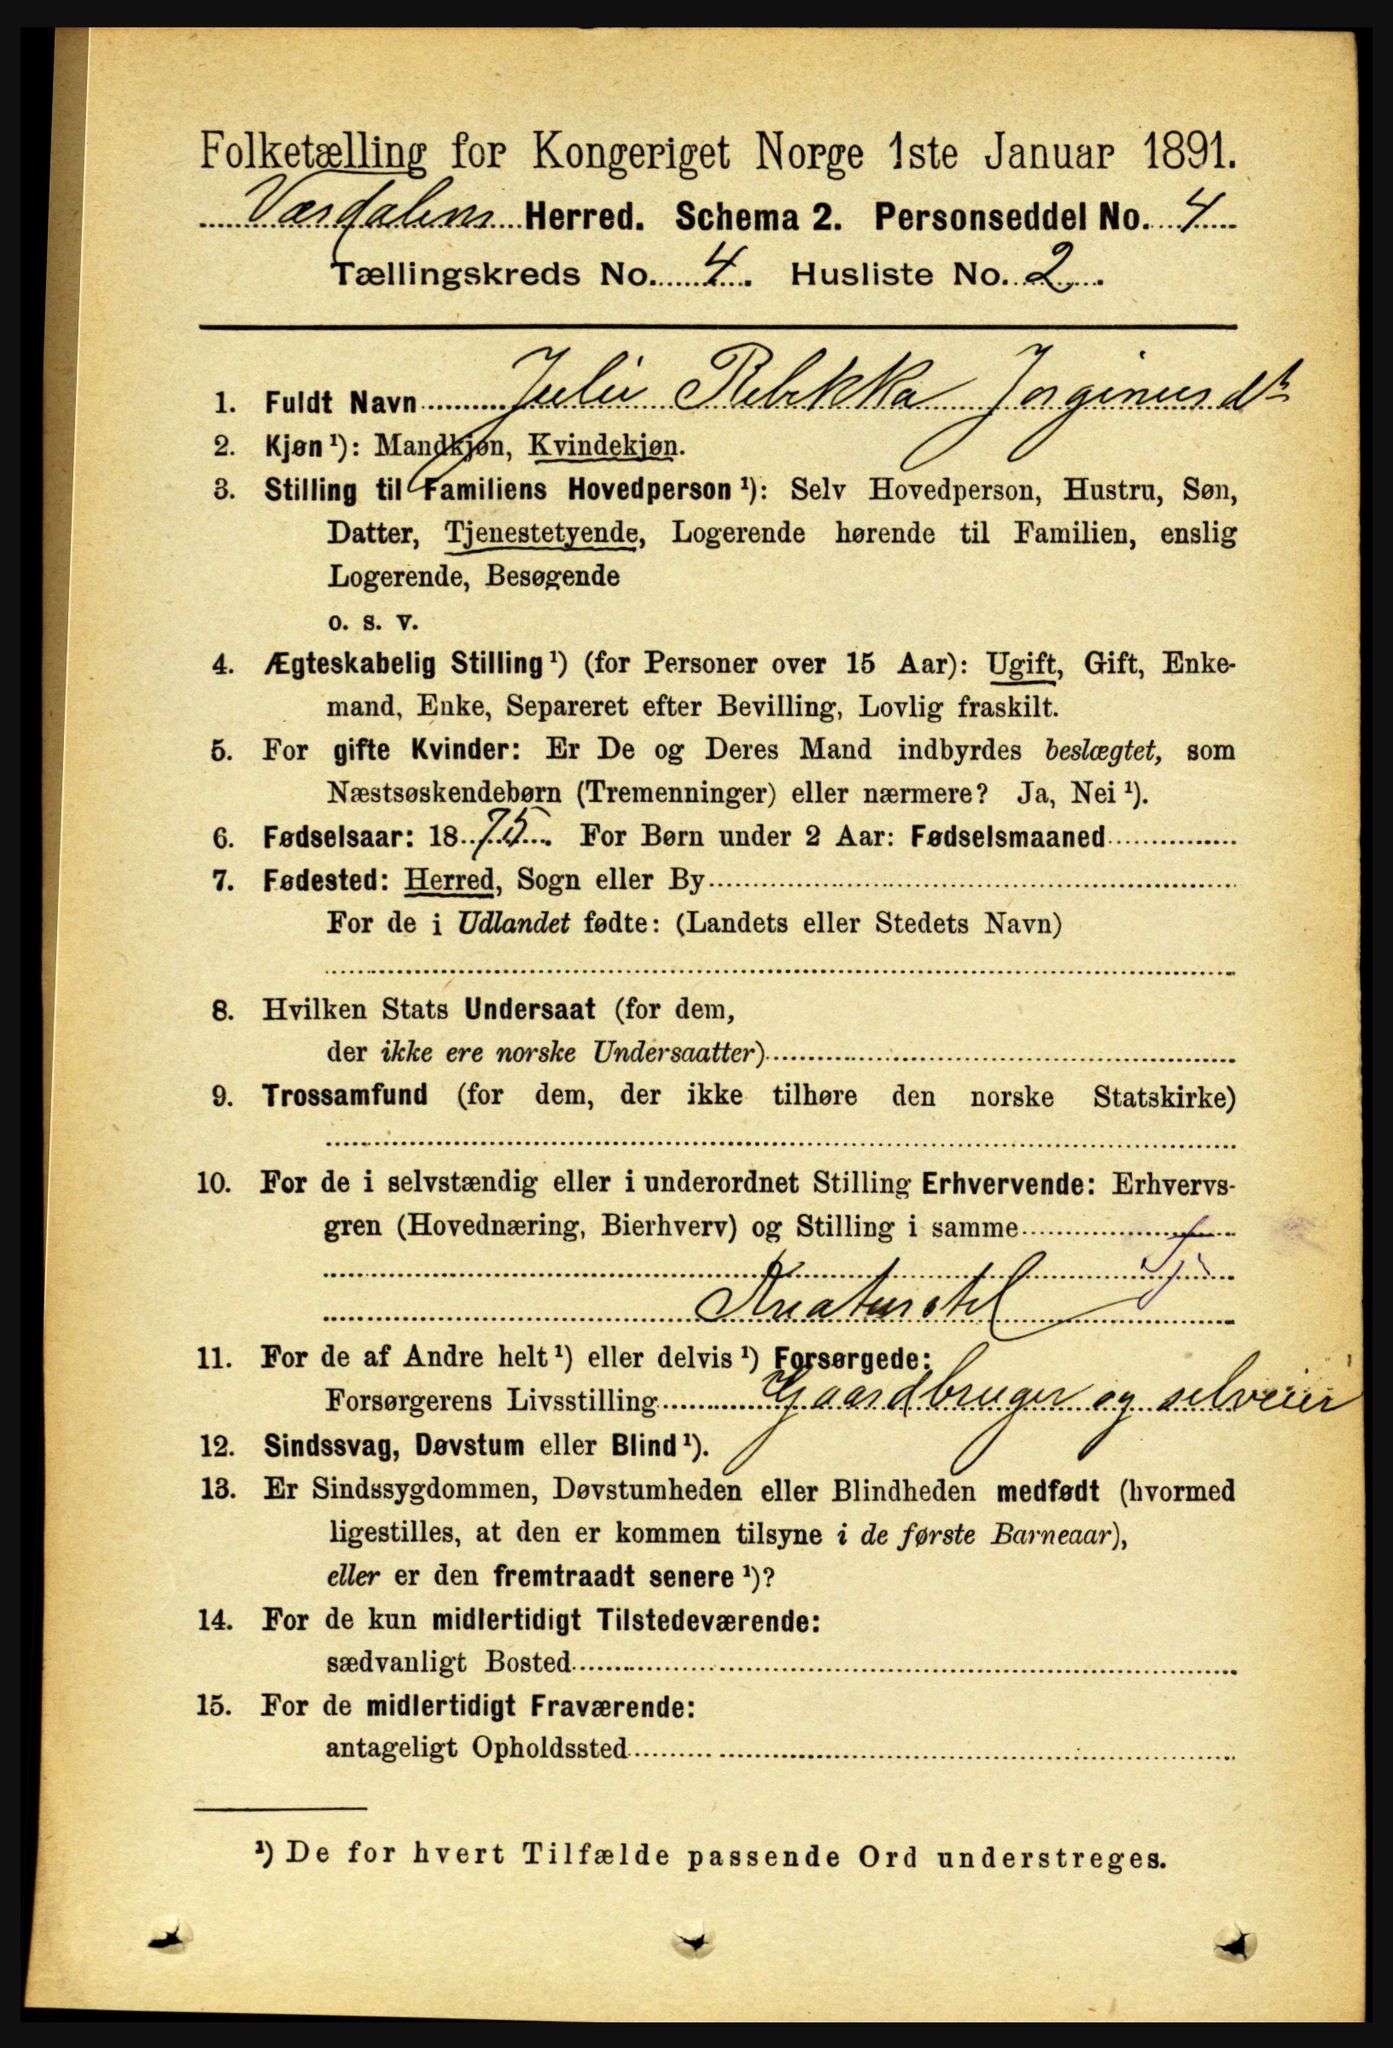 Folketælling for Kongeriget Norge 1ste Januar 1891.
Værdalens Herred. Schema 2. Personseddel No. 4
Tællingskreds No. 4. Husliste No. 2.
1. Fuldt Navn Julie Rebekka Jorginusdtr
2. Kjøn ¹): Mandkjøn, Kvindekjøn.
3. Stilling til Familiens Hovedperson ¹): Selv Hovedperson, Hustru, Søn,
Datter, Tjenestetyende, Logerende hørende til Familien, enslig
Logerende, Besøgende
o. s. v.
4. Ægteskabelig Stilling ¹) (for Personer over 15 Aar): Ugift, Gift, Enke-
mand, Enke, Separeret efter Bevilling, Lovlig fraskilt.
5. For gifte Kvinder: Er De og Deres Mand indbyrdes beslægtet, som
Næstsøskendebørn (Tremenninger) eller nærmere? Ja, Nei ¹).
6. Fødselsaar: 1875. For Børn under 2 Aar: Fødselsmaaned
7. Fødested: Herred, Sogn eller By
For de i Udlandet fødte: (Landets eller Stedets Navn)
8. Hvilken Stats Undersaat (for dem,
der ikke ere norske Undersaatter)
9. Trossamfund (for dem, der ikke tilhøre den norske Statskirke)
10. For de i selvstændig eller i underordnet Stilling Erhvervende: Erhvervs-
gren (Hovednæring, Bierhverv) og Stilling i samme
Tj
Kreaturstel
11. For de af Andre helt ¹) eller delvis ¹) Forsørgede:
Forsørgerens Livsstilling Gaardbruger og selveier
12. Sindssvag, Døvstum eller Blind ¹).
13. Er Sindssygdommen, Døvstumheden eller Blindheden medfødt (hvormed
ligestilles, at den er kommen tilsyne i de første Barneaar),
eller er den fremtraadt senere ¹)?
14. For de kun midlertidigt Tilstedeværende:
sædvanligt Bosted
15. For de midlertidigt Fraværende:
antageligt Opholdssted
¹) De for hvert Tilfælde passende Ord understreges.